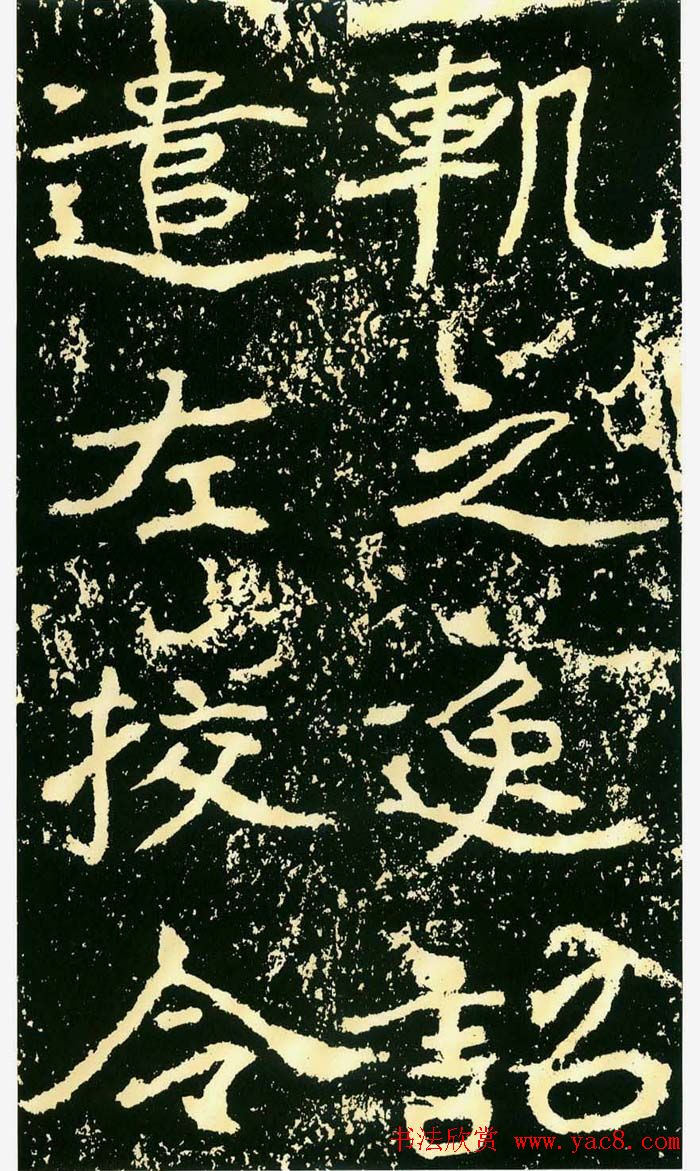 軌之逸詔
遣左挍令
书法欣赏 www.yac8.com